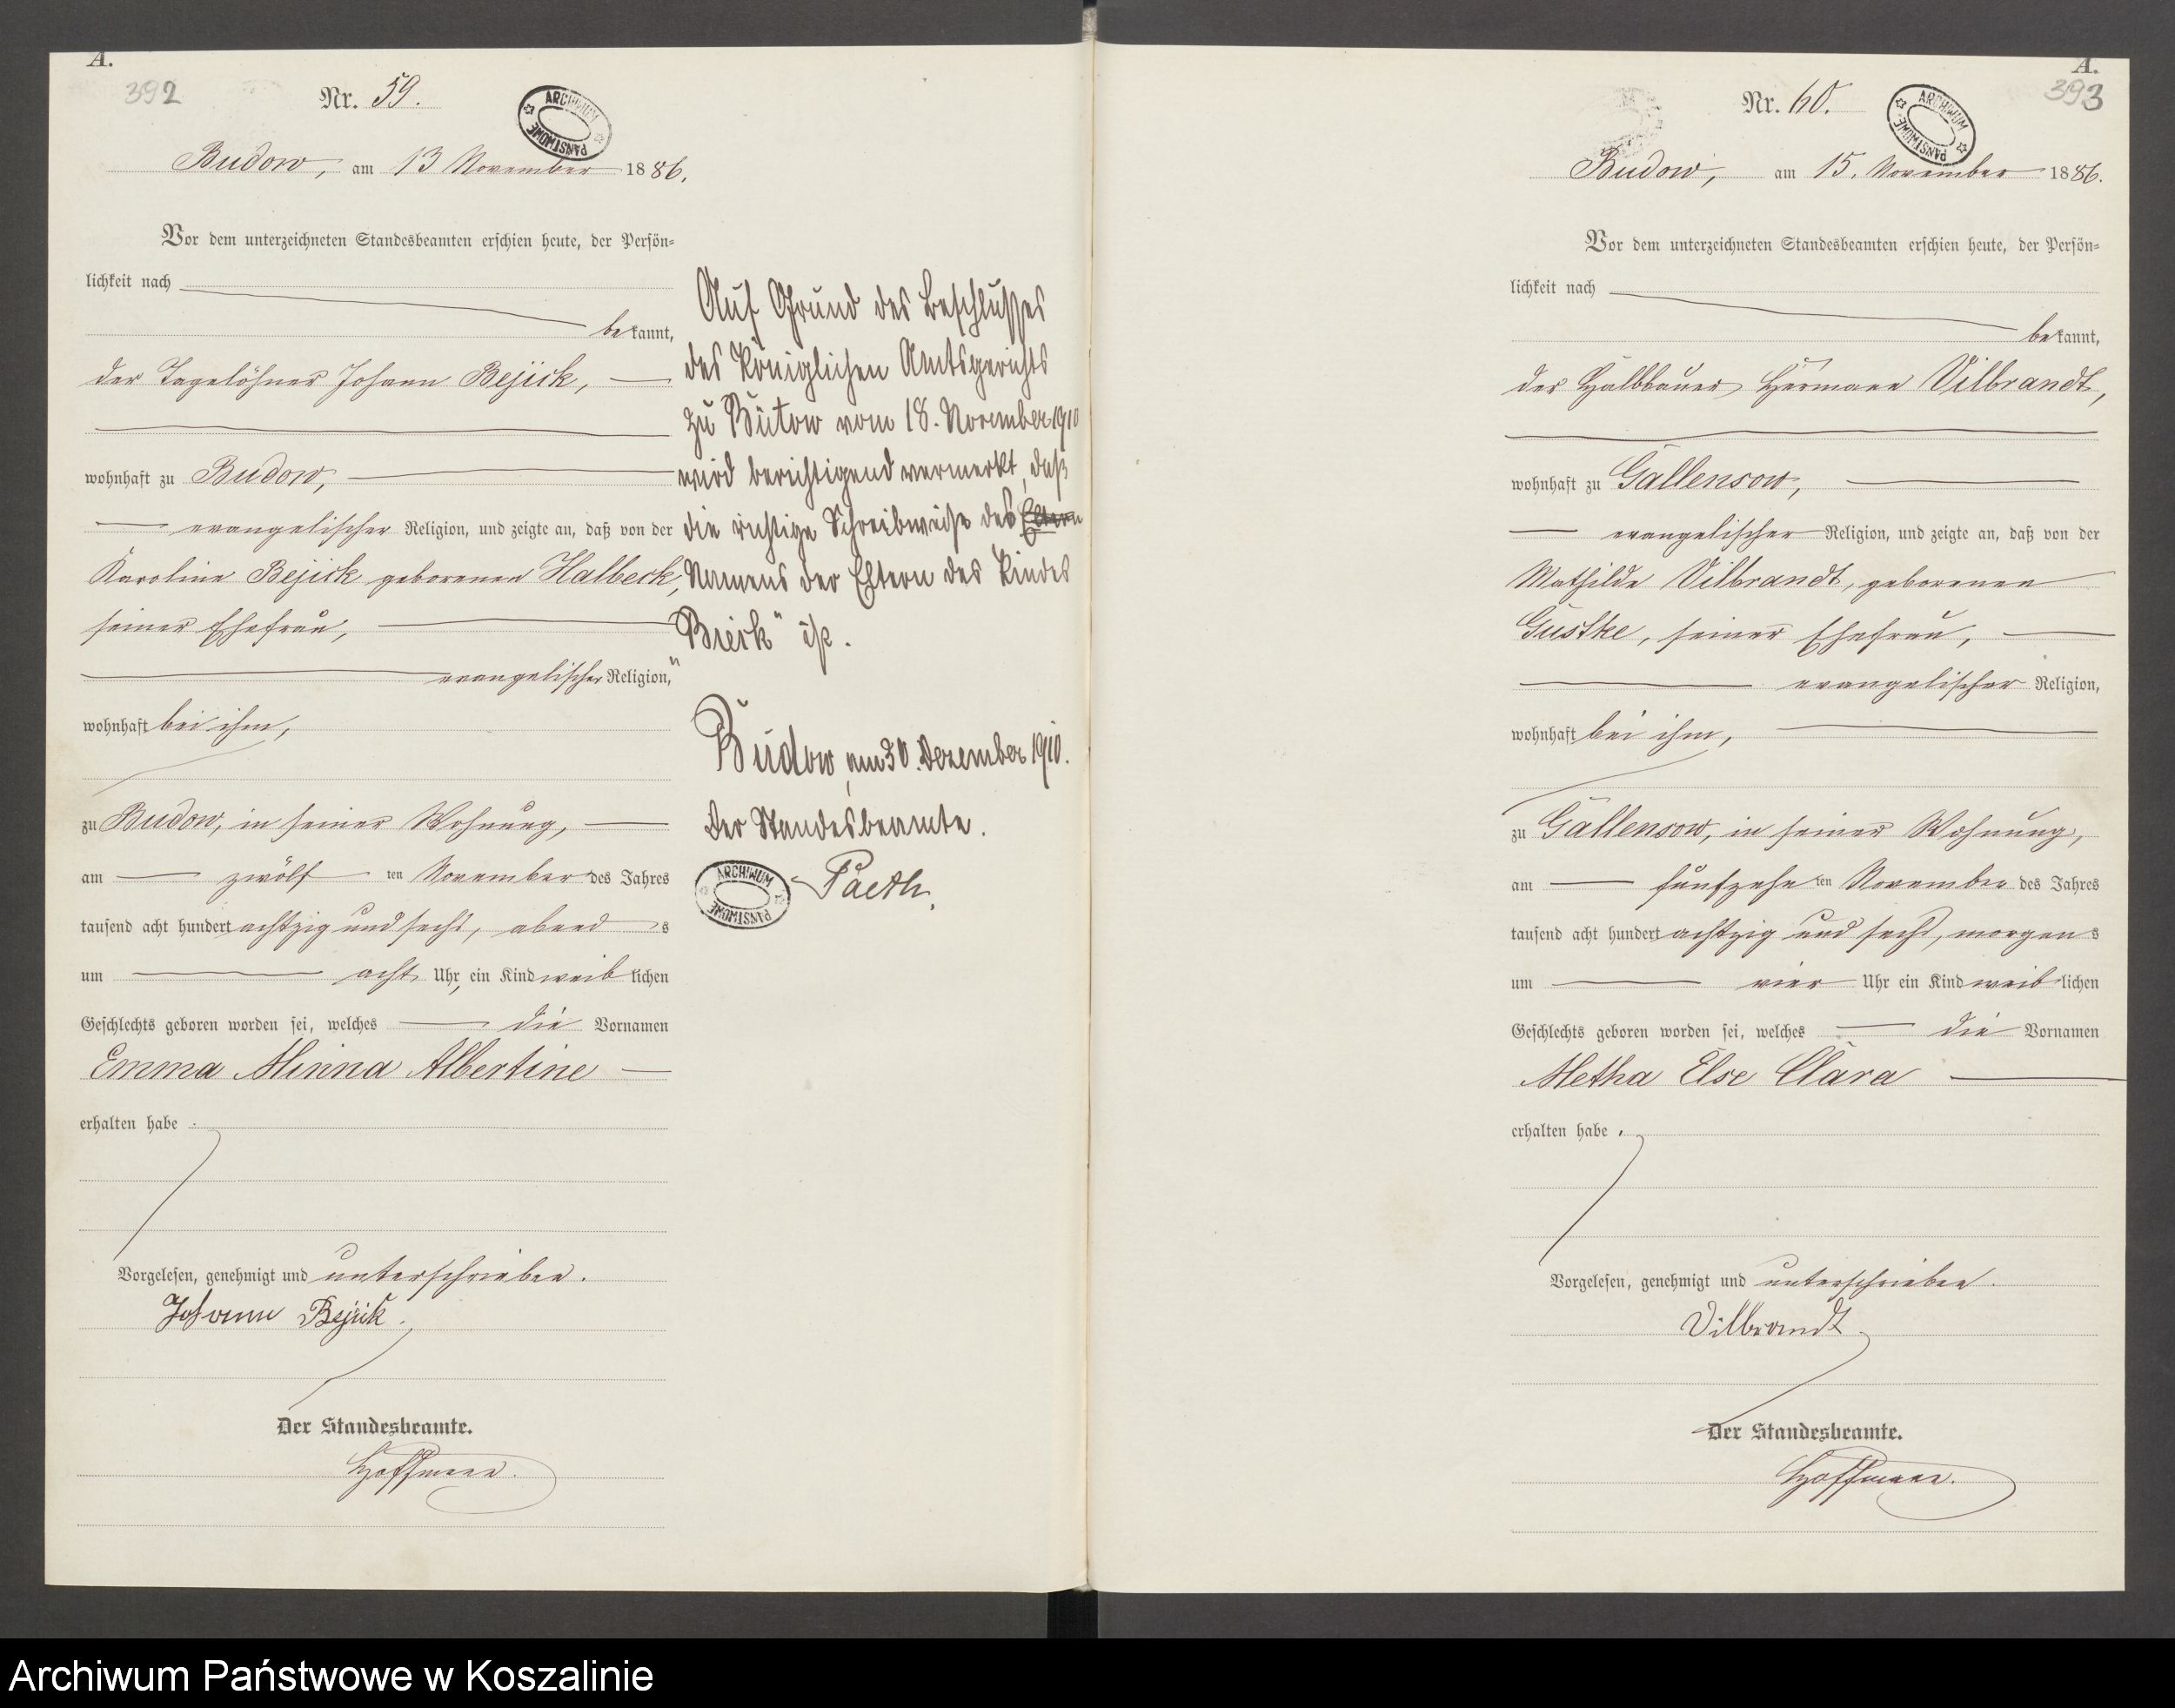 A.
392
Nr. 59.
ARCHIWUM PAŃSTWOWE
Budow, am 13 November 1886.
Vor dem unterzeichneten Standesbeamten erschien heute, der Persön-
lichkeit nach
bekannt,
der Tagelöhner Johann Bejick,
wohnhaft zu Budow,
evangelischer Religion, und zeigte an, daß von der
Karoline Bejick geborenen Halbeck,
seiner Ehefrau,
evangelischer Religion,
wohnhaft bei ihm,
zu Budow, in seiner Wohnung,
am zwölf ten November des Jahres
tausend acht hundert achtzig und sechs, abend s
um acht Uhr, ein Kind weib lichen
Geschlechts geboren worden sei, welches die Vornamen
Emma Minna Albertine
erhalten habe.
Vorgelesen, genehmigt und unterschrieben.
Johann Bejick.
Der Standesbeamte.
Hoffmann.
Auf Grund des Beschlusses
des Königlichen Amtsgerichts
zu Bütow vom 18. November 1910
wird berichtigend vermerkt, daß
die richtige Schreibweise des Eltern
Namens der Eltern des Kindes
„Brieik" ist.
Budow, am 30. Dezember 1910.
Der Standesbeamte.
Paeth.
ARCHIWUM PAŃSTWOWE
A.
393
Nr. 60.
ARCHIWUM PAŃSTWOWE
Budow, am 15. November 1886.
Vor dem unterzeichneten Standesbeamten erschien heute, der Persön-
lichkeit nach
bekannt,
der Halbbauer Hermann Vilbrandt,
wohnhaft zu Gallensow,
evangelischer Religion, und zeigte an, daß von der
Mathilde Vilbrandt, geborenen
Gustke, seiner Ehefrau,
evangelischer Religion,
wohnhaft bei ihm,
zu Gallensow, in seiner Wohnung,
am fünfzehn ten November des Jahres
tausend acht hundert achtzig und sechs, morgen s
um vier Uhr ein Kind weib lichen
Geschlechts geboren worden sei, welches die Vornamen
Metha Else Clara
erhalten habe.
Vorgelesen, genehmigt und unterschrieben.
Vilbrandt
Der Standesbeamte.
Hoffmann.
Archiwum Państwowe w Koszalinie